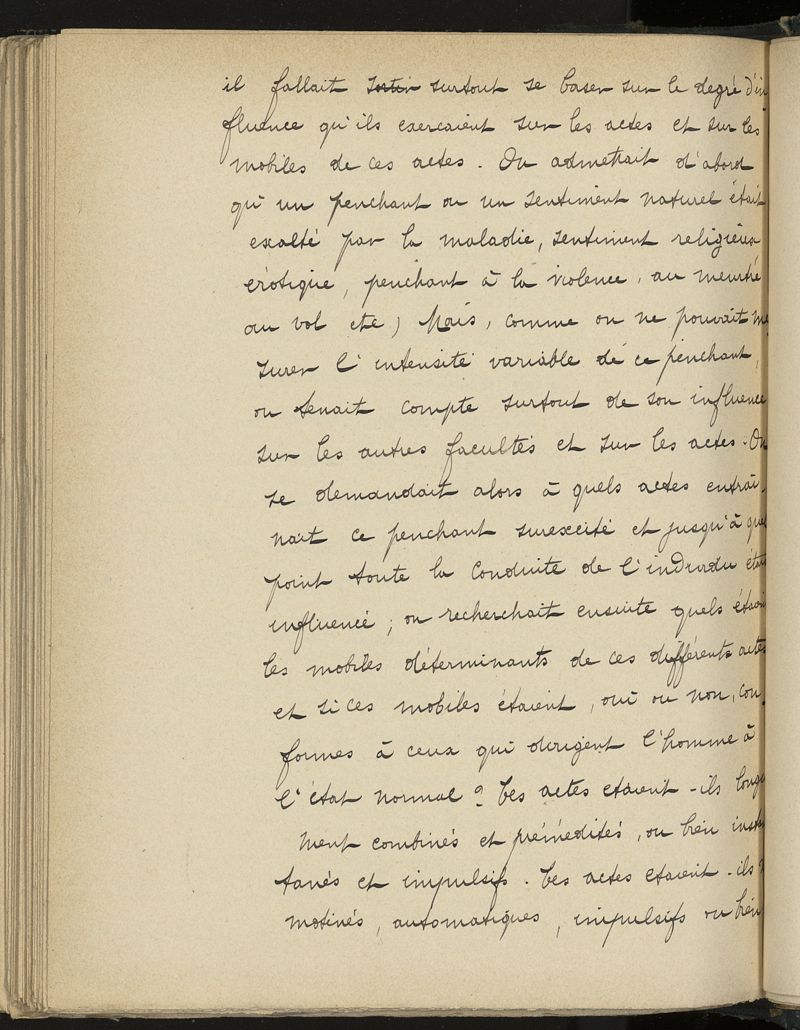 il fallait sortir surtout se baser sur le degré d'in
fluence qu'ils exercaient sur les actes et sur les
mobiles de ces actes. On admettait d'abord
qu'un penchant ou un sentiment naturel était
exalté par la maladie, sentiment religieux
érotique, penchant à la violence, au meurtre
au vol etc) Mais, comme on ne pouvait me
surer l'intensité variable de ce penchant,
on tenait compte surtout de son influence
sur les autres facultés et sur les actes. On
se demandait alors à quels actes entraî-
nait ce penchant surexcité et jusqu'à quel
point toute la conduite de l'individu était
influencé ; on recherchait ensuite quels étaient
les mobiles déterminants de ces différents actes
et si ces mobiles étaient, oui ou non, con-
formes à ceux qui dirigent l'homme à
l'état normal ? Ces actes etaient-ils longue
ment combinés et prémédités, ou bien instan
tanés et impulsifs. Ces actes etaient-ils
motivés, automatiques, impulsifs ou bien